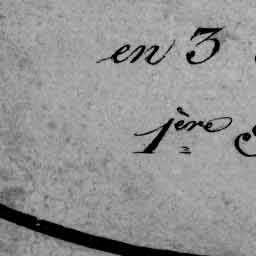 en 3
1ère